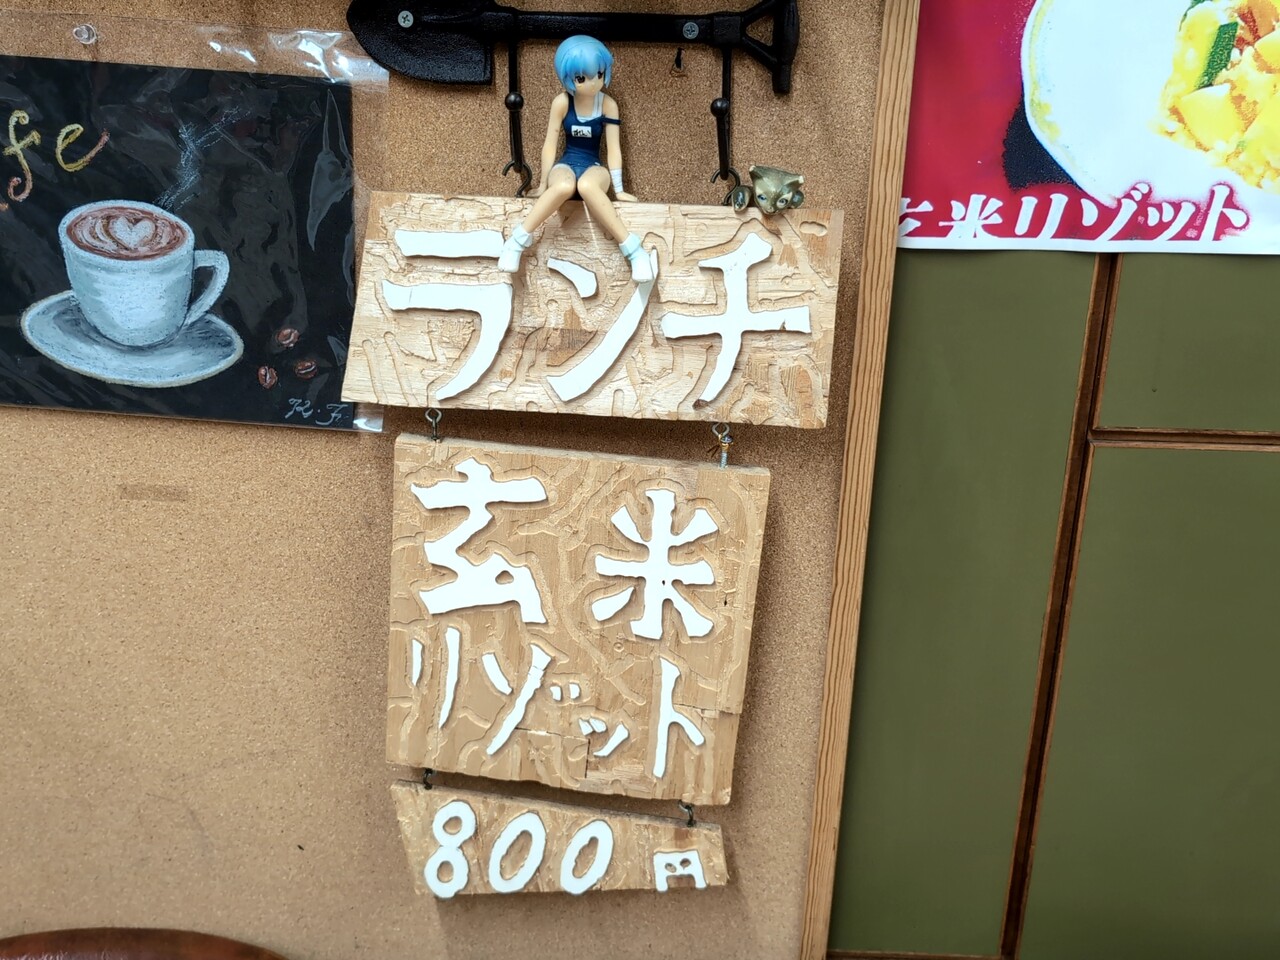 fe
K.F.
ランチ
玄米
リゾット
800円
玄米リゾット